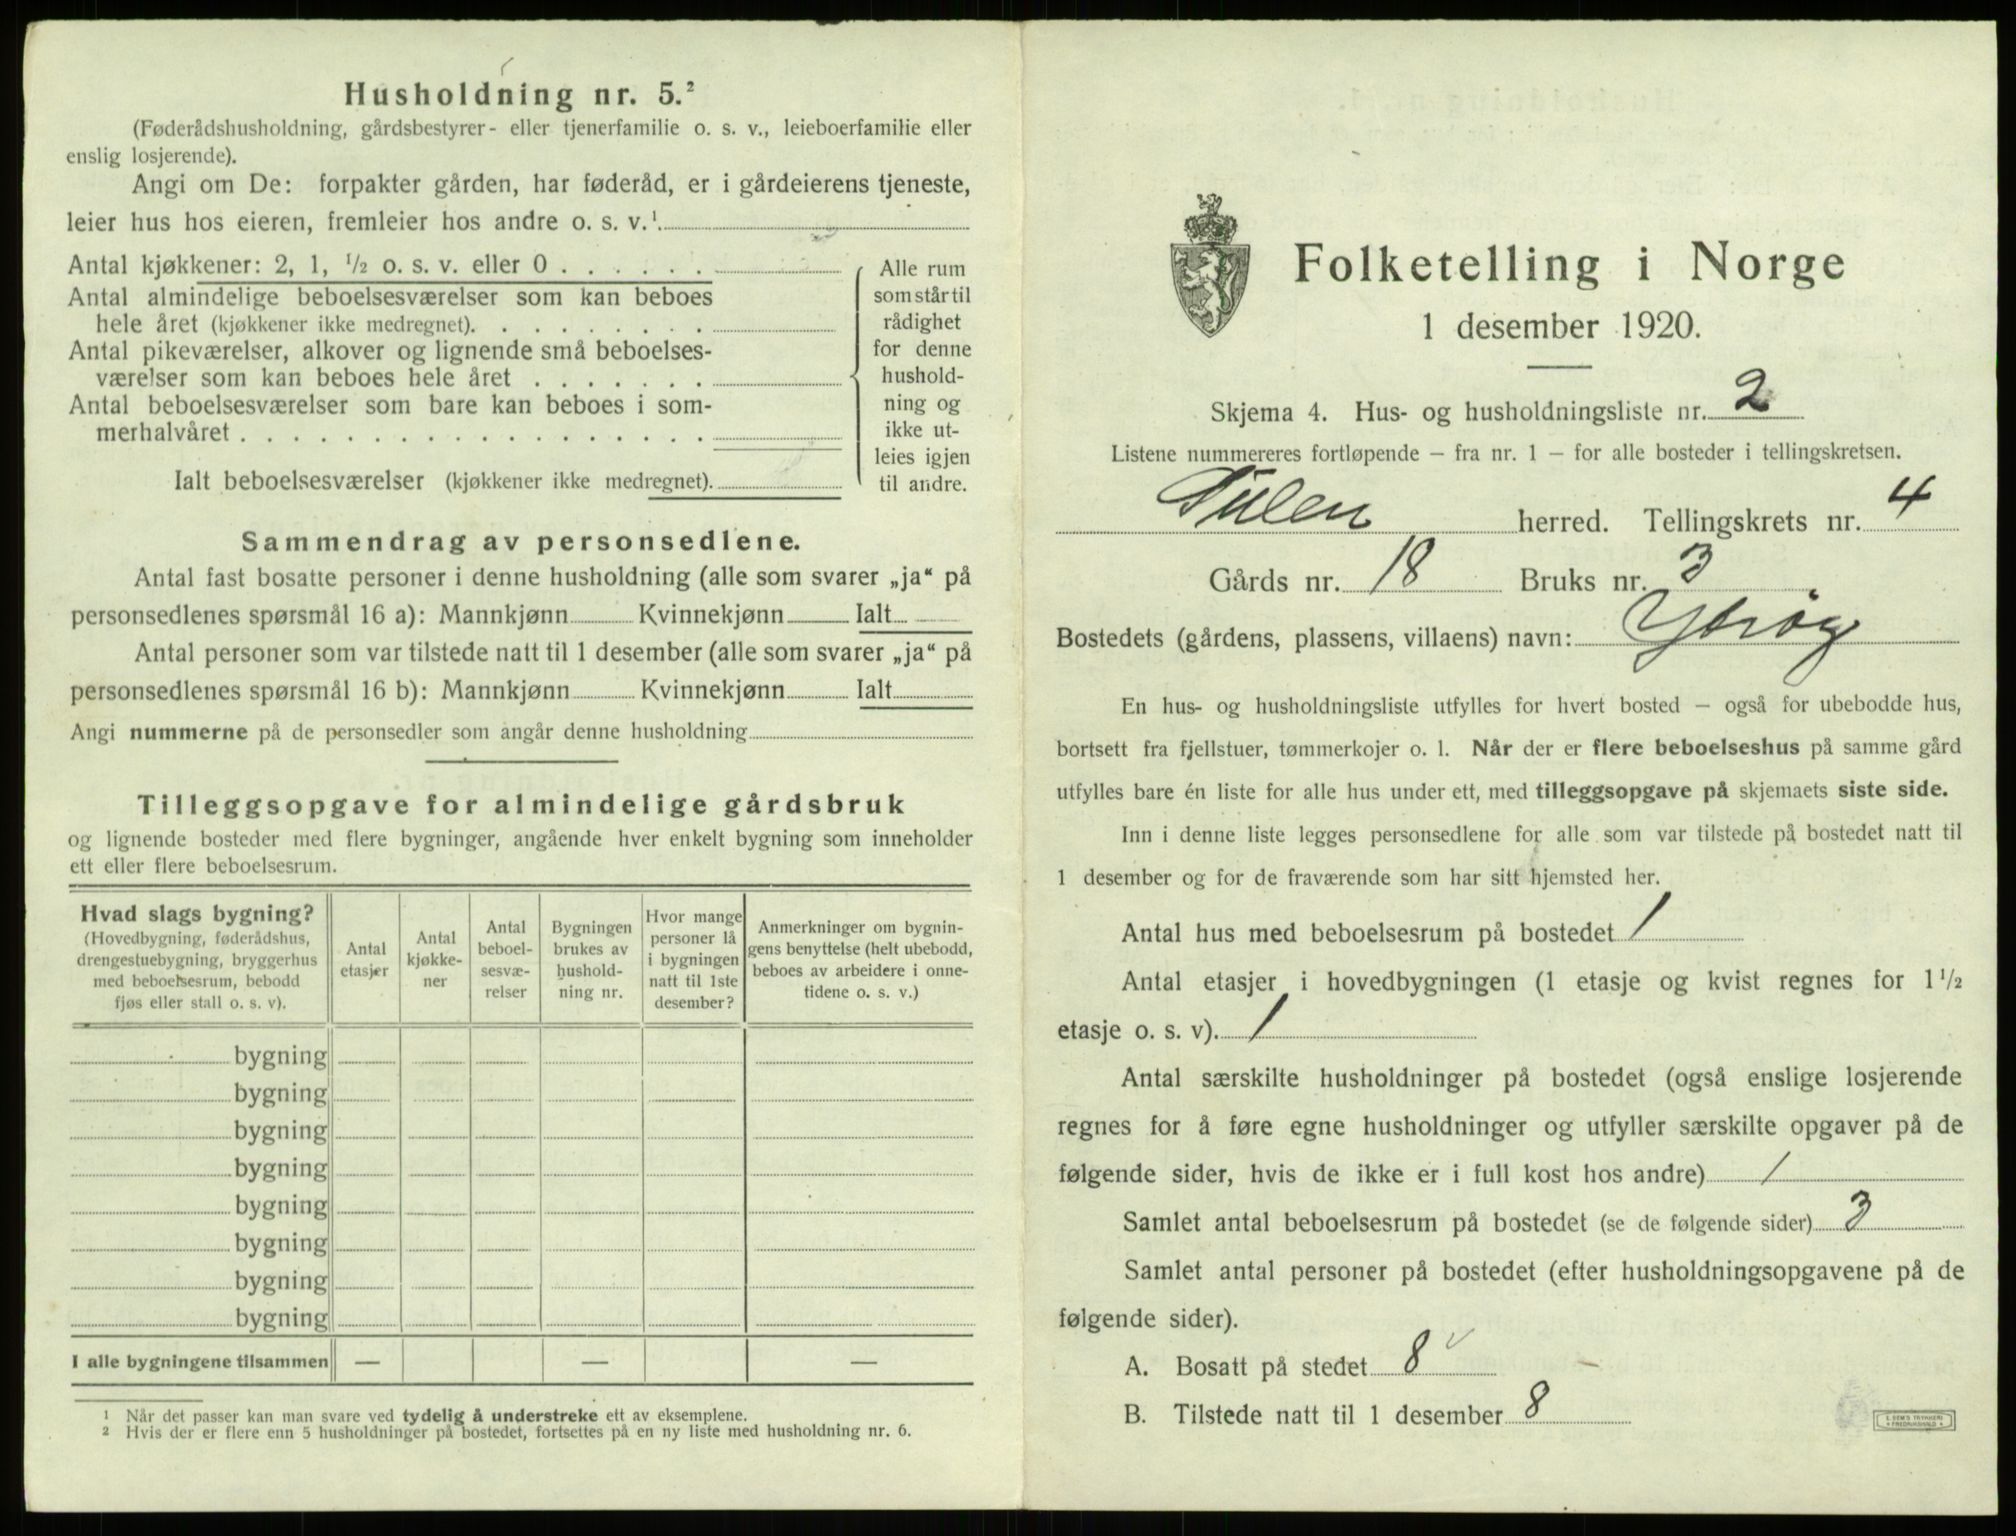 Husholdning nr. 5.²
(Føderådshusholdning, gårdsbestyrer- eller tjenerfamilie o. s. v., leieboerfamilie eller
enslig losjerende).
Angi om De: forpakter gården, har føderåd, er i gårdeierens tjeneste,
leier hus hos eieren, fremleier hos andre o. s. v.¹
Antal kjøkkener: 2, 1, ¹/₂ o. s. v. eller 0 . . . . . .
Antal almindelige beboelsesværelser som kan beboes
hele året (kjøkkener ikke medregnet). . . . . . . . .
Antal pikeværelser, alkover og lignende små beboelses-
værelser som kan beboes hele året . . . . . . .
Antal beboelsesværelser som bare kan beboes i som-
merhalvåret . . . . . . . . . . . . . . . . . .
Ialt beboelsesværelser (kjøkkener ikke medregnet).
Alle rum
som står til
rådighet
for denne
hushold-
ning og
ikke ut-
leies igjen
til andre.
Sammendrag av personsedlene.
Antal fast bosatte personer i denne husholdning (alle som svarer „ja“ på
personsedlenes spørsmål 16 a): Mannkjønn Kvinnekjønn Ialt
Antal personer som var tilstede natt til 1 desember (alle som svarer „ja“ på
personsedlenes spørsmål 16 b): Mannkjønn Kvinnekjønn Ialt
Angi nummerne på de personsedler som angår denne husholdning
Tilleggsopgave for almindelige gårdsbruk
og lignende bosteder med flere bygninger, angående hver enkelt bygning som inneholder
ett eller flere beboelsesrum.
Hvad slags bygning?
(Hovedbygning, føderådshus,
drengestuebygning, bryggerhus
med beboelsesrum, bebodd
fjøs eller stall o. s. v).
Antal
etasjer
Antal
kjøkke-
ner
Antal
beboel-
sesvæ-
relser
Bygningen
brukes av
hushold-
ning nr.
Hvor mange
personer lå
i bygningen
natt til 1ste
desember?
Anmerkninger om bygnin-
gens benyttelse (helt ubebodd,
beboes av arbeidere i onne-
tidene o. s. v.)
bygning
bygning
bygning
bygning
bygning
bygning
bygning
bygning
I alle bygningene tilsammen — — —
¹ Når det passer kan man svare ved tydelig å understreke ett av eksemplene.
² Hvis der er flere enn 5 husholdninger på bostedet, fortsettes på en ny liste med husholdning nr. 6.
Folketelling i Norge
1 desember 1920.
Skjema 4. Hus- og husholdningsliste nr. 2
Listene nummereres fortløpende — fra nr. 1 — for alle bosteder i tellingskretsen.
herred. Tellingskrets nr. 4
Gårds nr. 18 Bruks nr. 3
Bostedets (gårdens, plassens, villaens) navn: Ytrøy
En hus- og husholdningsliste utfylles for hvert bosted — også for ubebodde hus,
bortsett fra fjellstuer, tømmerkojer o. l. Når der er flere beboelseshus på samme gård
utfylles bare én liste for alle hus under ett, med tilleggsopgave på skjemaets siste side.
Inn i denne liste legges personsedlene for alle som var tilstede på bostedet natt til
1 desember og for de fraværende som har sitt hjemsted her.
Antal hus med beboelsesrum på bostedet 1
Antal etasjer i hovedbygningen (1 etasje og kvist regnes for 1 ¹/₂
etasje o. s. v). 1
Antal særskilte husholdninger på bostedet (også enslige losjerende
regnes for å føre egne husholdninger og utfyller særskilte opgaver på de
følgende sider, hvis de ikke er i full kost hos andre) 1
Samlet antal beboelsesrum på bostedet (se de følgende sider) 3
Samlet antal personer på bostedet (efter husholdningsopgavene på de
følgende sider).
A. Bosatt på stedet 8 ✓
B. Tilstede natt til 1 desember 8